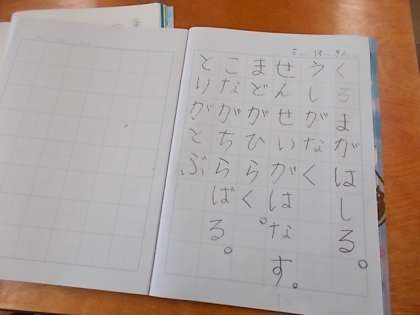 くるまがはしる。
うしがなく
せんせいがはなす。
まどがひらく。
こながちらばる。
とりがとぶ